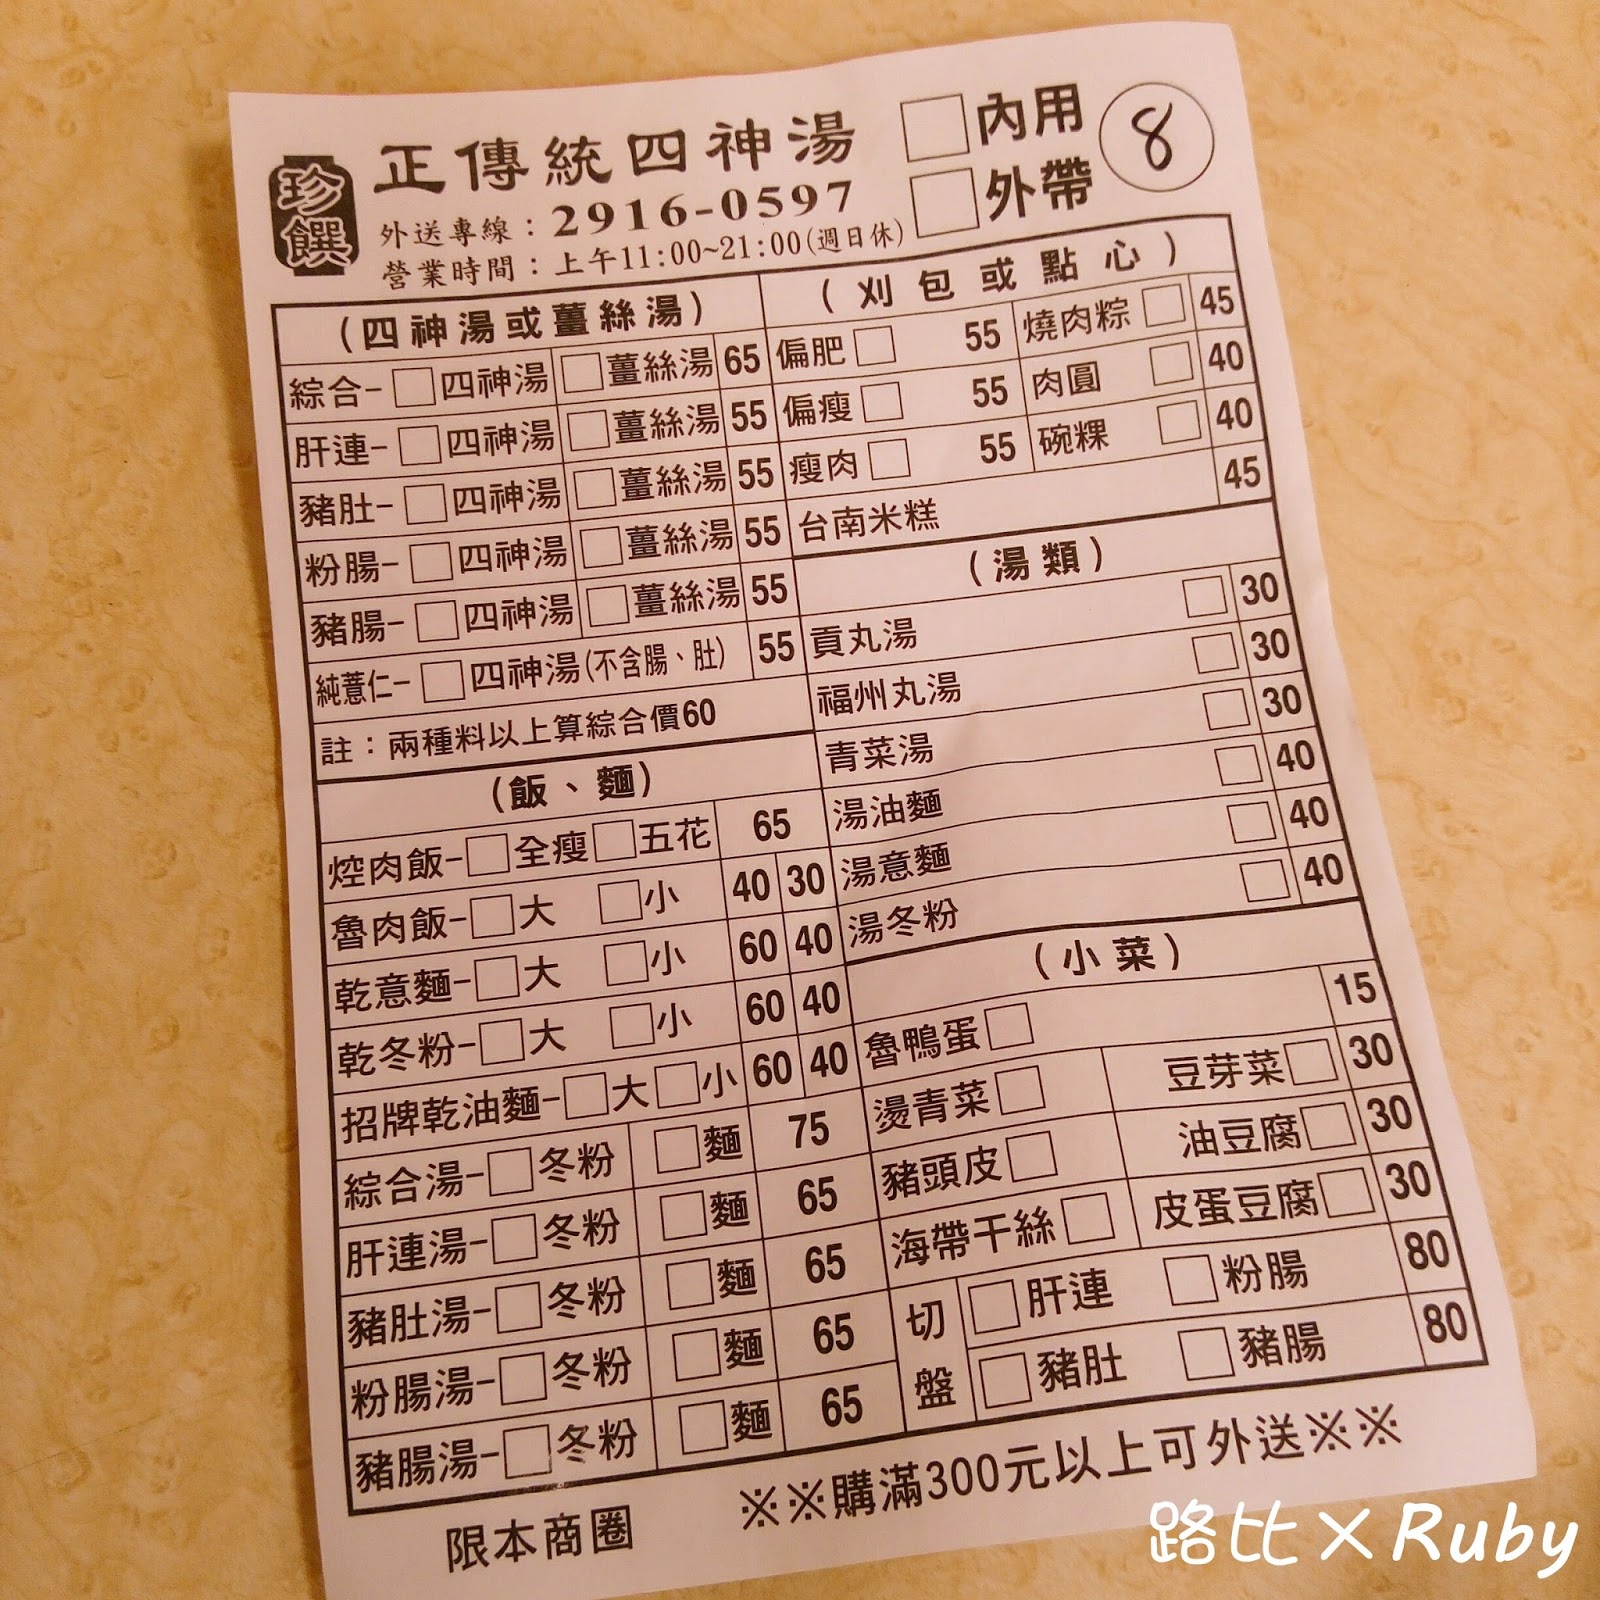 珍饌
正傳統四神湯
外送專線：2916-0597
營業時間：上午11:00~21:00(週日休)
□內用
□外帶
8
(四神湯或薑絲湯)
綜合-□四神湯 □薑絲湯 65
肝連-□四神湯 □薑絲湯 55
豬肚-□四神湯 □薑絲湯 55
粉腸-□四神湯 □薑絲湯 55
豬腸-□四神湯 □薑絲湯 55
純薏仁-□四神湯(不含腸、肚) 55
註：兩種料以上算綜合價60
(飯、麵)
焢肉飯-□全瘦□五花 65
魯肉飯-□大 □小 40 30
乾意麵-□大 □小 60 40
乾冬粉-□大 □小 60 40
招牌乾油麵-□大□小 60 40
綜合湯-□冬粉 □麵 75
肝連湯-□冬粉 □麵 65
豬肚湯-□冬粉 □麵 65
粉腸湯-□冬粉 □麵 65
豬腸湯-□冬粉 □麵 65
(刈包或點心)
偏肥□ 55 燒肉粽□ 45
偏瘦□ 55 肉圓□ 40
瘦肉□ 55 碗粿□ 40
台南米糕 45
(湯類)
貢丸湯 □ 30
福州丸湯 □ 30
青菜湯 □ 30
湯油麵 □ 40
湯意麵 □ 40
湯冬粉 □ 40
(小菜)
魯鴨蛋□ 15
燙青菜□ 豆芽菜□ 30
豬頭皮□ 油豆腐□ 30
海帶干絲□ 皮蛋豆腐□ 30
切盤 □肝連 □粉腸 80
□豬肚 □豬腸 80
限本商圈 ※※購滿300元以上可外送※※
路比×Ruby